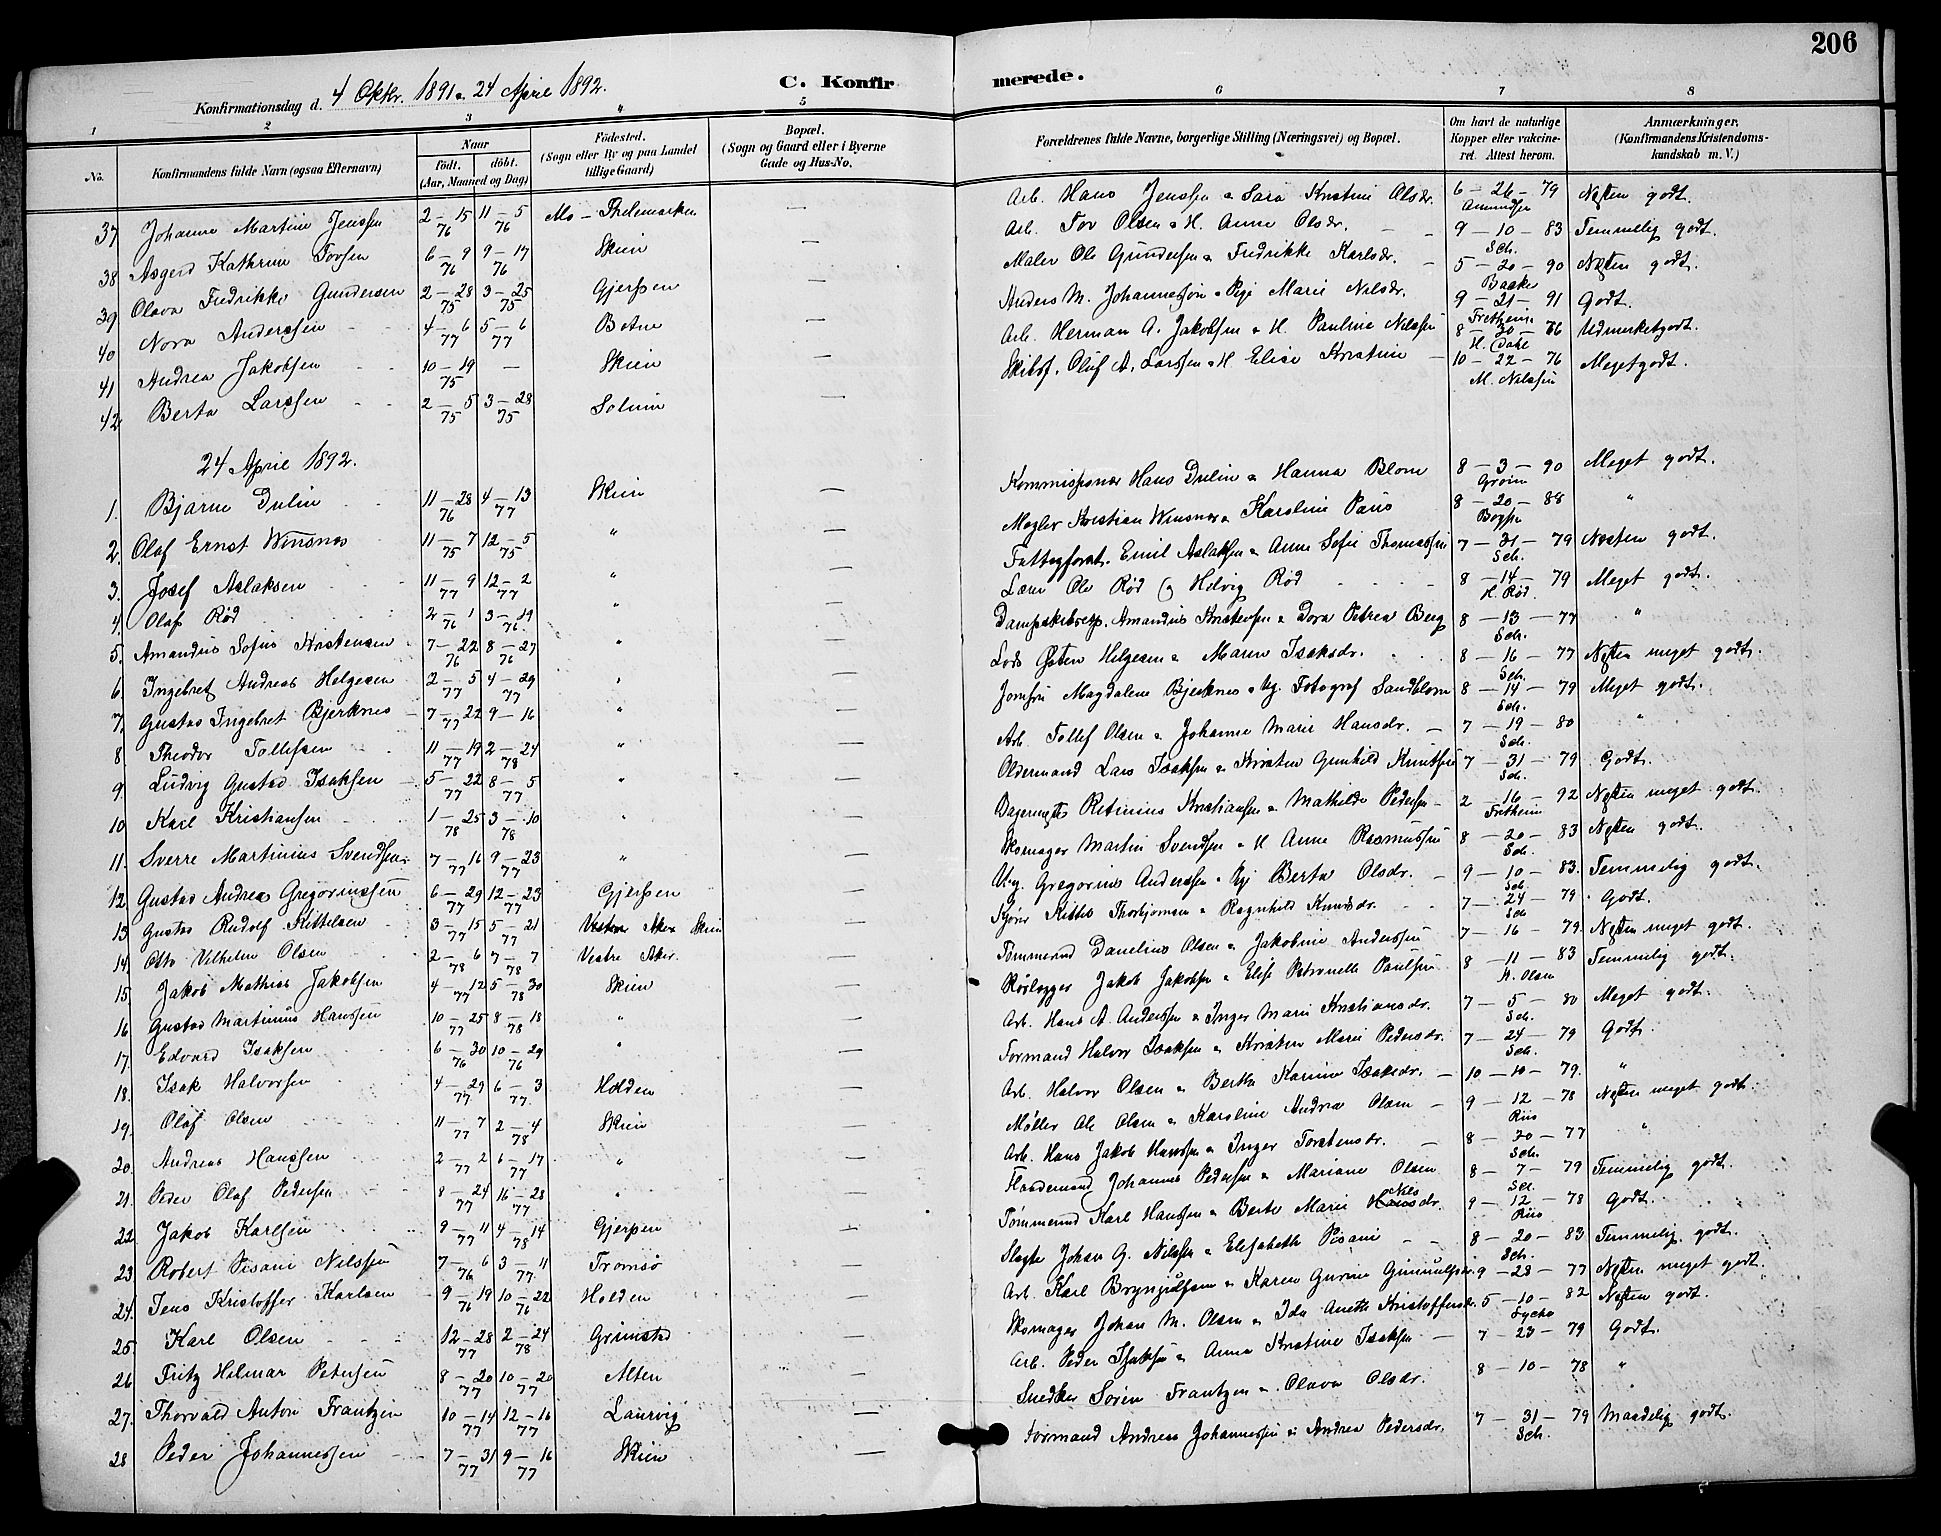 206
Konfirmationsdag d. 4 Oktbr. 1891 & 24 April 1892. C. Konfirmerede.
1 2 3 4 5 6 7 8
No. Konfirmandens fulde Navn (ogsaa Efternavn) Naar født. døbt. (Aar, Maaned og Dag) Fødested. (Sogn eller By og paa Landet tillige Gaard) Bopæl. (Sogn og Gaard eller i Byerne Gade og Hus-No. Forældrenes fulde Navne, borgerlige Stilling (Næringsvei) og Bopæl. Om havt de naturlige Kopper eller vakcineret. Attest herom. Anmærkninger. (Konfirmandens Kristendomskundskab m. V.)
37 Johanne Martine Jenssen 2-15 76 11-5 76 Mo - Thelemarken — Arb. Hans Jenssen & Sara Kristine Olsdr. 6-26-79 Amundsen Næsten godt.
38 Asgerd Kathrine Torsen 6-9 76 9-17 76 Skien — Arb. Tov Olsen & H. Anne Olsdr. 9-10-83 Sch. Temmelig godt.
39 Olava Fredrikke Gundersen 2-28 75 3-25 75 Gjerpen — Maler Ole Gundersen & Fredrikke Karlsdr. 5-20-90 Baake Næsten godt.
40 Nora Anderssen 4-6 77 5-6 77 Botne — Anders M. Johannessøn & Pige Marie Nilsdr. 9-21-91 Fretheim Godt.
41 Andrea Jakobsen 10-19 75 — Skien — Arb. Herman A. Jakobsen & H. Pauline Nilssen 8-30-76 H. Dahl Udmerketgodt.
42 Berta Larssen 2-5 75 3-28 75 Solum — Skibsf. Oluf A. Larssen & H. Elise Kristine 10-22-76 M. Nilssen Megetgodt.
24 April 1892.
1. Bjarne Dulin 11-28 76 4-13 77 Skien — Kommissionær Hans Dulin & Hanna Blom 8-3-90 Meget godt.
2. Olaf Ernst Winsnes 11-7 75 12-5 75 " — Mægler Kristian Winsnes & Karoline Paus 8-20-88 "
3. Josef Aslaksen 11-9 77 12-2 77 " — Fattigforst. Emil Aslaksen & Anne Sofie Thomassen 7-31-79 Sch. Næsten godt.
4. Olaf Rød 2-1 76 3-19 76 " — Lærer Ole Rød og Helvig Rød 8-14-79 H. Rød. Meget godt.
5. Amandus Sofus Kristensen 7-22 76 8-27 76 " — Dampskibsexp. Amandus Kristensen & Dora Petrea Berg 8-13-77 Sch. "
6. Ingebret Andreas Helgesen 2-5 77 4-29 77 " — Lods Østen Helgesen & Maren Isaksdr. 8-16-77 Sch. Næsten meget godt.
7. Gustav Ingebret Bjerknes 7-22 77 9-16 " — Jomfru Magdalene Bjerknes & Ug. Fotograf Sandblom 8-14-79 Sch. Meget godt.
8 Theodor Tollefsen 11-19 77 2-24 78 " — Arb. Tollef Olsen & Johanne Marie Hansdr. 7-19-80 Sch. "
9 Ludvig Gustav Isaksen 5-22 77 8-5 77 " — Oldermand Lars Isaksen & Kirsten Gunhild Knutsen 7-31-79 Sch. Godt.
10 Karl Kristiansen 1-25 78 3-10 78 " — Bagermester Kristiansen & Mathilde Pedersen 2-16-92 Fretheim Næsten meget godt.
11. Sverre Martinius Svendsen 7-16 77 9-23 77 " — Skomager Martin Svendsen & H. Anne Rasmussen 8-20-83 Sch. Næsten godt.
12 Gustav Andreas Gregoriussen 6-29 77 12-23 77 Gjerpen — Ug. Gregorius Anderssen & Pige Berta Olsdr. 9-10-83. Sch. Temmelig godt.
13 Gustav Rudolf Kittelsen 3-15 77 5-21 77 Vestre Aker Skien — Kittel Thorbjørnsen & Ragnhild Knudsdr. 7-24-79 Sch Godt.
14. Otto Vilhelm Olsen 2-6 78 7-7 78 Vestre Aker — Tømmermd Danelius Olsen & Jakobine Anderssen 7-16-79. Næsten meget godt.
15. Jakob Mathias Jakobsen 4-12 77 5-30 78 Skien — Rørlægger Jakob Jakobsen & Elise Petronelle Paulsen 8-11-83 H. Olsen Temmelig godt.
16 Gustav Martinius Hanssen 10-25 77 8-18 78 " — Arb. Hans A. Anderssen & Inger Marie Kristiansdr. 7-5-80 Sch. Meget godt.
17. Edvard Isaksen 6-30 76 10-29 76 " — Formand Halvor Isaksen & Kirsten Marie Pedersdr. 7-24-79 Sch. Godt.
18. Isak Halvorsen 4-29 77 6-3 77. Holden — Arb. Halvor Olsen & Berthe Karine Isaksdr. 10-10-79. "
19. Olaf Olsen 11-7 77 2-4 78 Skien — Møller Ole Olsen & Karoline Andrea Olsen 9-12-78 Riis Næsten meget godt.
20. Andreas Hanssen 2-2 77 6-17 77 " — Arb. Hans Jakob Hanssen & Inger Torstensdr. 8-20-77 Sch. "
21. Peder Olaf Pedersen 8-24 77 16-28 77 " — Johannes Pedersen & Mariane Olsen 8-7-79 Sch. Temmelig godt.
22 Jakob Karlsen 9-11 77 4-14 78 Gjerpen — Tømmermd Karl Hanssen & Berte Marie Nilsdr. 9-12-78 Riis Godt.
23 Robert Pisani Nilssen 7-6 76 3-11 77. Tromsø — Johan G. Nilssen & Elisabeth Pisani 8-20-83 Sch. Temmelig godt.
24. Jens Kristoffer Karlsen 9-19 76 10-22 76 Holden — Arb. Karl Brynjulfsen & Karen Gurine Gunnulfsdr. 9-28-77 Næsten meget godt.
25 Karl Olsen 12-28 77 2-24 78 Grimstad — Skomager Johan M. Olsen & Ida Anette Kristoffersdr. 5-10-82 Lycke Næsten godt.
26 Fritz Hilmar Petersen 8-20 77 10-20 77 Alten — Arb. Peder Isaksen & Anna Kristine Isaksen 7-23-79 Godt.
27. Thorvald Anton Frantzen 10-14 77 12-16 77 Laurvig — Snedker Søren Frantzen & Olava Olsdr. 8-10-78 "
28 Peder Johannessen 7-31 77 9-16 77 Skien — Formand Andreas Johannessen & Andrea Pedersdr. 7-31-79 Sch. Maadelig godt.